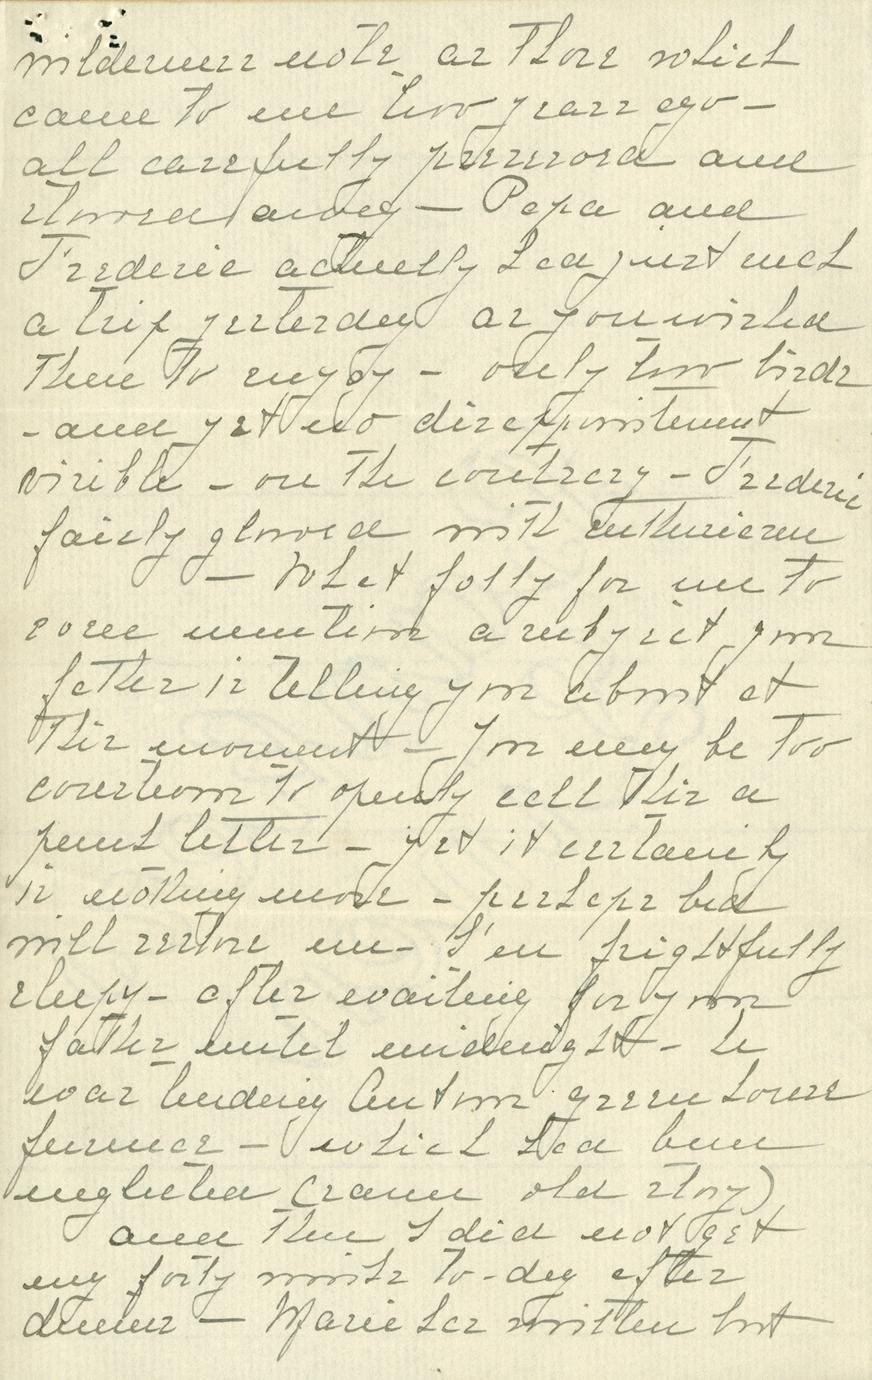 wilderness note, as those which
came to me two years ago -
all carefully preserved and
stowed away - Papa and
Frederic actually had just such
a trip yesterday as you wished
them to enjoy - only two birds
- and yet no disappointment
visible - on the contrary - Frederic
fairly glowed with enthusiasm
- What folly for me to
even mention a subject your
father is telling you about at
this moment - You may be too
courteous to openly call this a
punk letter - yet it certainly
is nothing more - perhaps bed
will restore me - I'm frightfully
sleepy - after waiting for your
father until midnight - he
was tending Anton's green house
furnace - which had been
neglected (same old story)
and then I did not get
my forty winks to-day after
dinner - Marie has written but